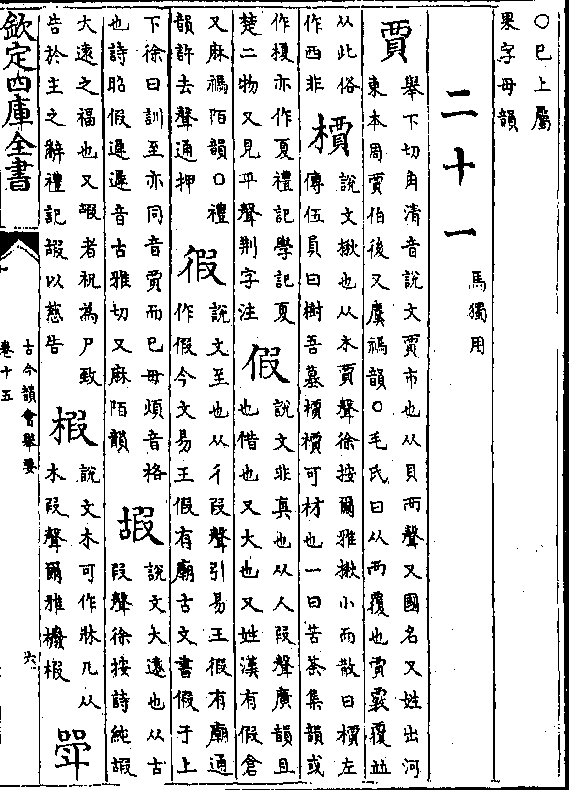 ○已上屬
果字母韻
二十一
馬獨用
賈
舉下切角清音說文賈市也从貝襾聲又國名又姓出河
東本周賈伯後又虞禡韻○毛氏曰从襾覆也賈覈覆並
从此俗
作西非
檟
說文楸也从木賈聲徐按爾雅楸小而散曰檟左
傳伍員曰樹吾墓檟檟可材也一曰苦荼集韻或
作榎亦作夏禮記學記夏
楚二物又見平聲荆字注
假
說文非真也从人叚聲廣韻且
也借也又大也又姓漢有假倉
又麻禡陌韻○禮
韻許去聲通押
徦
說文至也从彳叚聲引易王徦有廟通
作假今文易王假有廟古文書假于上
下徐曰訓至亦同音賈而巳毋煩音格
也詩昭假遲遲音古雅切又麻陌韻
嘏
說文大遠也从古
叚聲徐按詩純嘏
大遠之福也又嘏者祝為尸致
告於主之辭禮記嘏以慈告
椵
說文木可作牀几从
木叚聲爾雅櫠椵
斝
欽定四庫全書
古今韻會舉要
卷十五
六